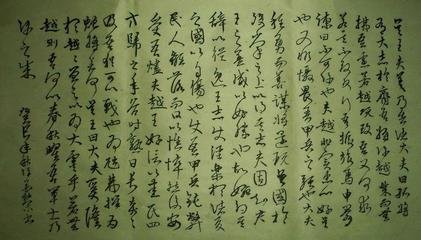 吳王夫差乃告諸大夫曰孤將
有大志於齊吾將許越成而無
拂吾慮若越既改吾又何求
若其不改反行吾振旅焉申胥
諫曰不可許也夫越非實忠心好吳
也又非懾畏吾甲兵之強也大夫
種勇而善謀將還玩吳國於
股掌之上以得其志夫固知君
王之蓋威以好勝也故婉約其
辭以從逸王志使淫樂於諸夏
之國以自傷也使吾甲兵鈍弊
民人離落而日以憔悴然後安
受吾燼夫越王好信以愛民四
方歸之年穀時熟日長炎炎
及吾猶可以戰也為虺弗摧為
蛇將若何吳王曰大夫奚隆
於越越曾足以為大虞乎若無
越則吾何以春秋曜吾軍士乃
許之成
癸巳年秋